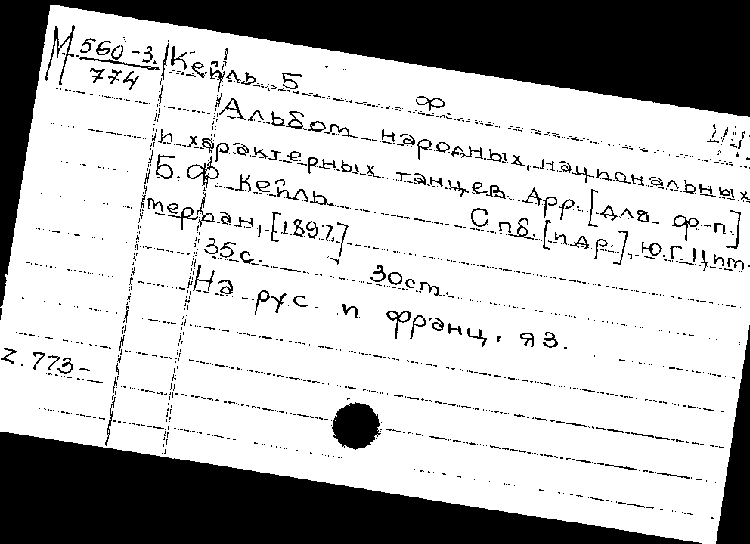 М 560-3.
774
Кейль, Б. Ф.
Альбом народных, национальных
и характерных танцев. Арр. [для ф-п.]
Б. Ф. Кейль.
Спб. [и др.], Ю. Г. Цим-
мерман, [1897].
35 с. 30 cm.
На рус. и франц. яз.
Z. 773-